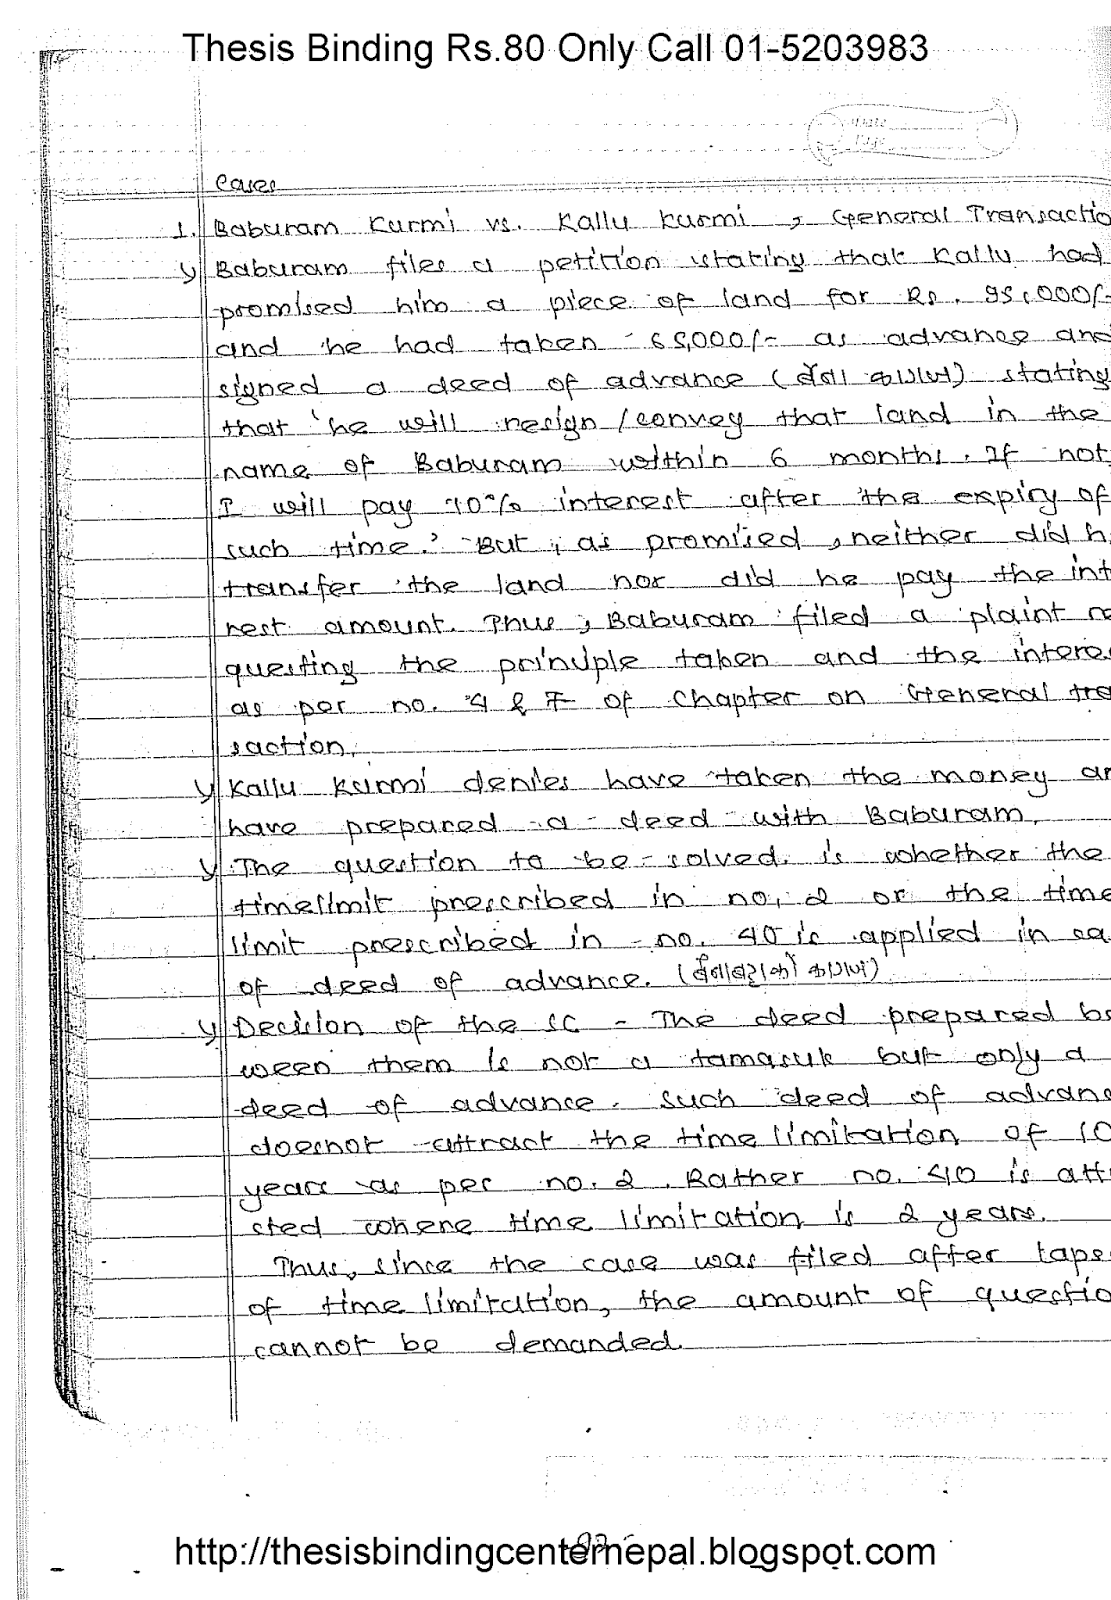 Thesis Binding Rs.80 Only Call 01-5203983
Date
Page
Cases
1. Baburam Kurmi vs. Kallu Kurmi, General Transactio
Baburam files a petition stating that Kallu had
promised him a piece of land for Rs. 95,000/-
and he had taken 65,000/- as advance and
signed a deed of advance (बैना कागज) stating
that 'he will resign/convey that land in the
name of Baburam within 6 months. If not,
I will pay 10% interest after the expiry of
such time.' But, as promised, neither did h
transfer the land nor did he pay the int
rest amount. Thus, Baburam filed a plaint re
questing the principle taken and the intere
as per no. 4 & of Chapter on General tra
saction.
Kallu Kurmi denies have taken the money an
have prepared a deed with Baburam.
The question to be solved is whether the
timelimit prescribed in no. 2 or the time
limit prescribed in no. 40 is applied in ca
of deed of advance. (बैनाबट्टाको कागज)
Decision of the SC - The deed prepared be
ween them is not a tamasuk but only a
deed of advance. Such deed of advanc
doesnot attract the time limitation of 10
years as per no. 2. Rather no. 40 is att
cted where time limitation is 2 years.
Thus, since the case was filed after laps
of time limitation, the amount of questio
cannot be demanded.
http://thesisbindingcenternepal.blogspot.com